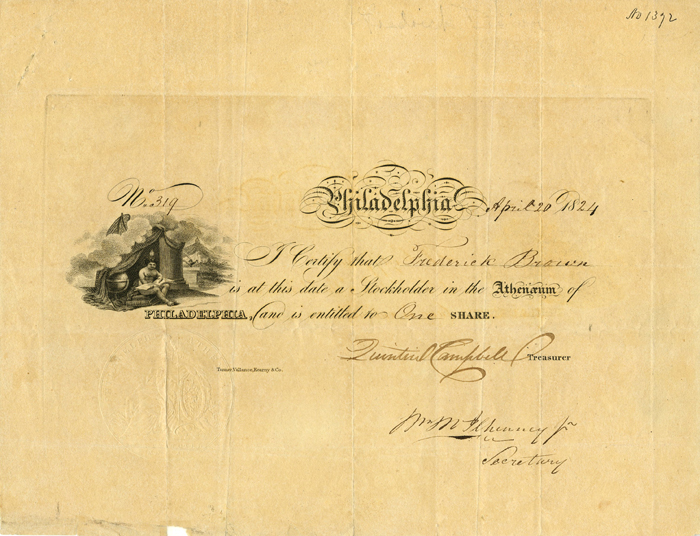 No 1392
No. 319
Philadelphia April 20th 1824
I Certify that Frederick Brown
is at this date a Stockholder in the Athenæum of
PHILADELPHIA, and is entitled to One SHARE.
Quintin Campbell Treasurer
Tanner, Vallance, Kearny & Co.
Wm McIlhenney Jr
Secretary